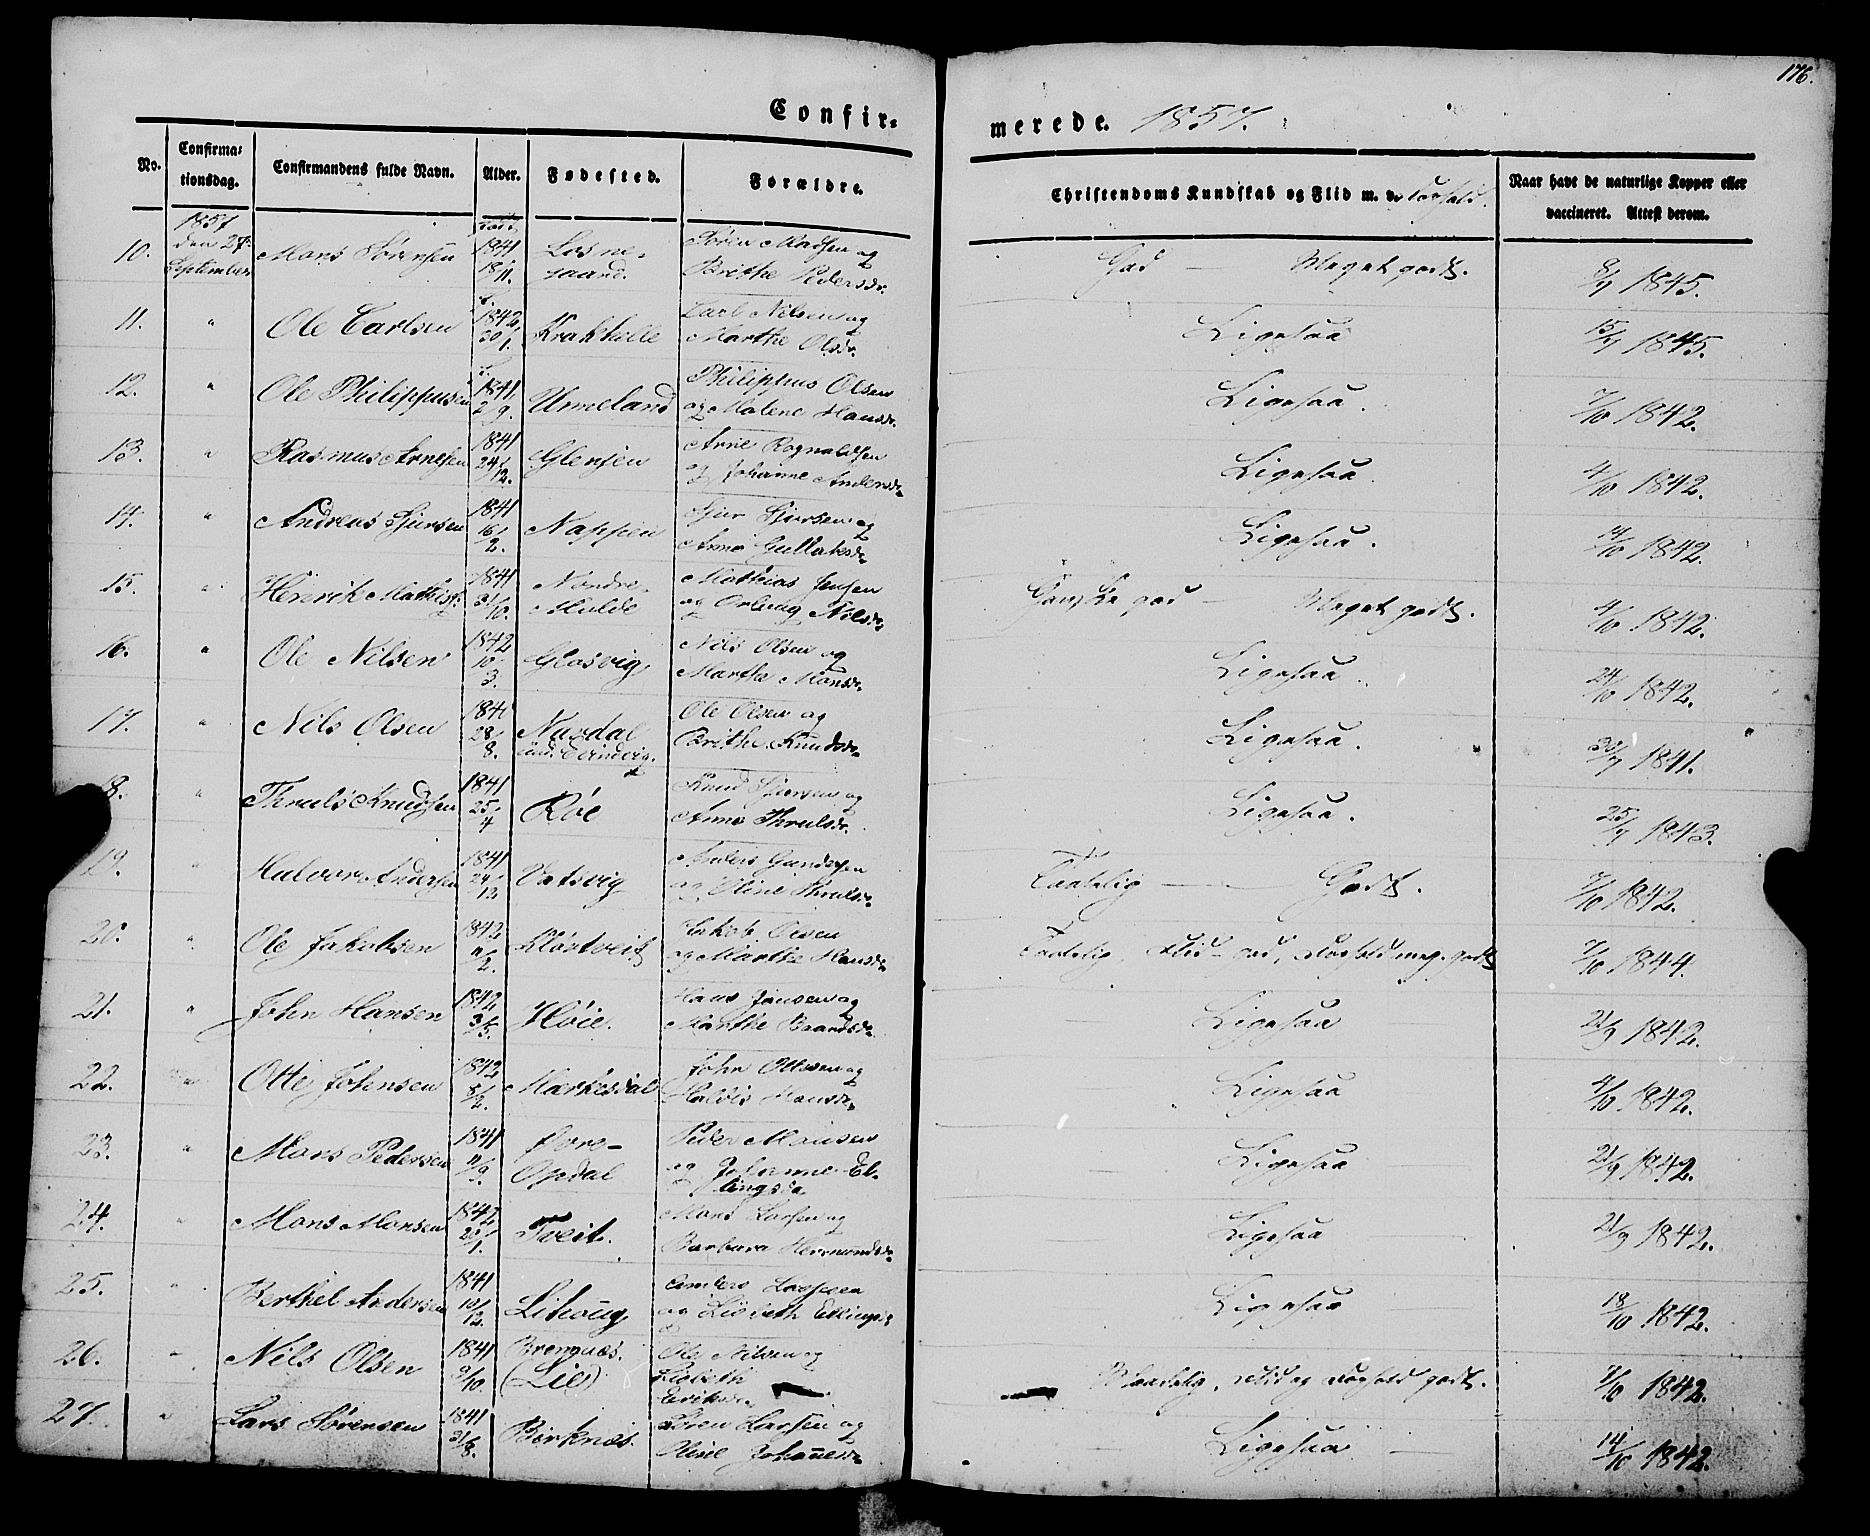 176.
Confir=
merede. 1857.
No.
Confirma=
tionsdag.
Confirmandens fulde Navn.
Alder.
Fødested.
Forældre.
Christendoms Kundskab og Flid m. v. Forhold.
Naar havt de naturlige Kopper eller
vaccineret. Attest derom.
1857
den 27
September
10. Mons Sørensen 1841 18/11. Losne-
gaard. Søren Madsen og
Brithe Pedersdr. God — Meget godt. 8/7 1845.
11. " Ole Carlsen 1842 30/1. Krakhelle Carl Nilsen og
Marthe Olsdr. Ligesaa 15/7 1845.
12. " Ole Philippusen 1841 2/9. Ummeland Philippus Olsen
og Malene Hansdr. Ligesaa. 7/10 1842.
13. " Rasmus Arnesen 1841 24/12. Glenjen Arne Rognaldsen
og Johanne Andersdr. Ligesaa 4/10 1842.
14. " Andreas Sjursen 1841 16/2. Nappen Sjur Sjursen og
Anna Gullaksdr. Ligesaa. 14/10 1842.
15. " Henrik Mathiss. 1841 31/10. Nordre-
Hulde Mathias Jensen
og Nilsdr. Ganske god — Meget godt. 4/10 1842.
16. " Ole Nilsen 1842 10/3. Glosvig Nils Olsen og
Marthe Monsdr. Ligesaa. 24/10 1842.
17. " Nils Olsen 1841 28/8. Nordal
Ole Olsen og
Brithe Knudsdr. Ligesaa. 30/7 1841.
18. " Thruls Knudsen 1841 25/4 Röe Knud Sjursen og
Anna Thrulsdr. Ligesaa. 25/7 1843.
19. " Halvor Andersen 1841 24/12 Vatsvig Anders Gundersen
og Oline Thrulsdr. Taalelig — Godt. 7/10 1842.
20. " Ole Jakobsen 1842 11/2. Kløvtveit Jakob Olsen
og Marthe Hansdr. Taalelig, Flid god, Forhold meg. godt 7/10 1844.
21. " John Hansen 1842 3/5. Høie. Hans Jonsen og
Marthe Brandsdr. Ligesaa 21/9 1842.
22. " Otte Johnsen 1842 8/2. Markesdal John Ottesen og
Haldis Hansdr. Ligesaa 4/10 1842.
23. " Mons Pedersen 1841 11/9. Øvre-
Opdal Peder Monsen
og Johanne El-
lingsdr. Ligesaa 21/9 1842.
24. " Mons Monsen 1842 20/1. Tveit. Mons Larsen og
Barbara Hermundsdr. Ligesaa 21/9 1842.
25. " Berthel Andersen 1841 10/12. Lihoug Anders Larsen
og Lisbeth Ellingsdr Ligesaa 18/10 1842.
26. " Nils Olsen 1841 9/10. Brengnæs.
(Lie) Ole Nilsen og
Lisbeth
Eriksdr. Maadelig, Flid og Forhold godt. 7/10 1842.
27. " Lars Sørensen 1841 31/8. Birknæs. Søren Larsen og
Oline Johannesdr Ligesaa. 14/10 1842.